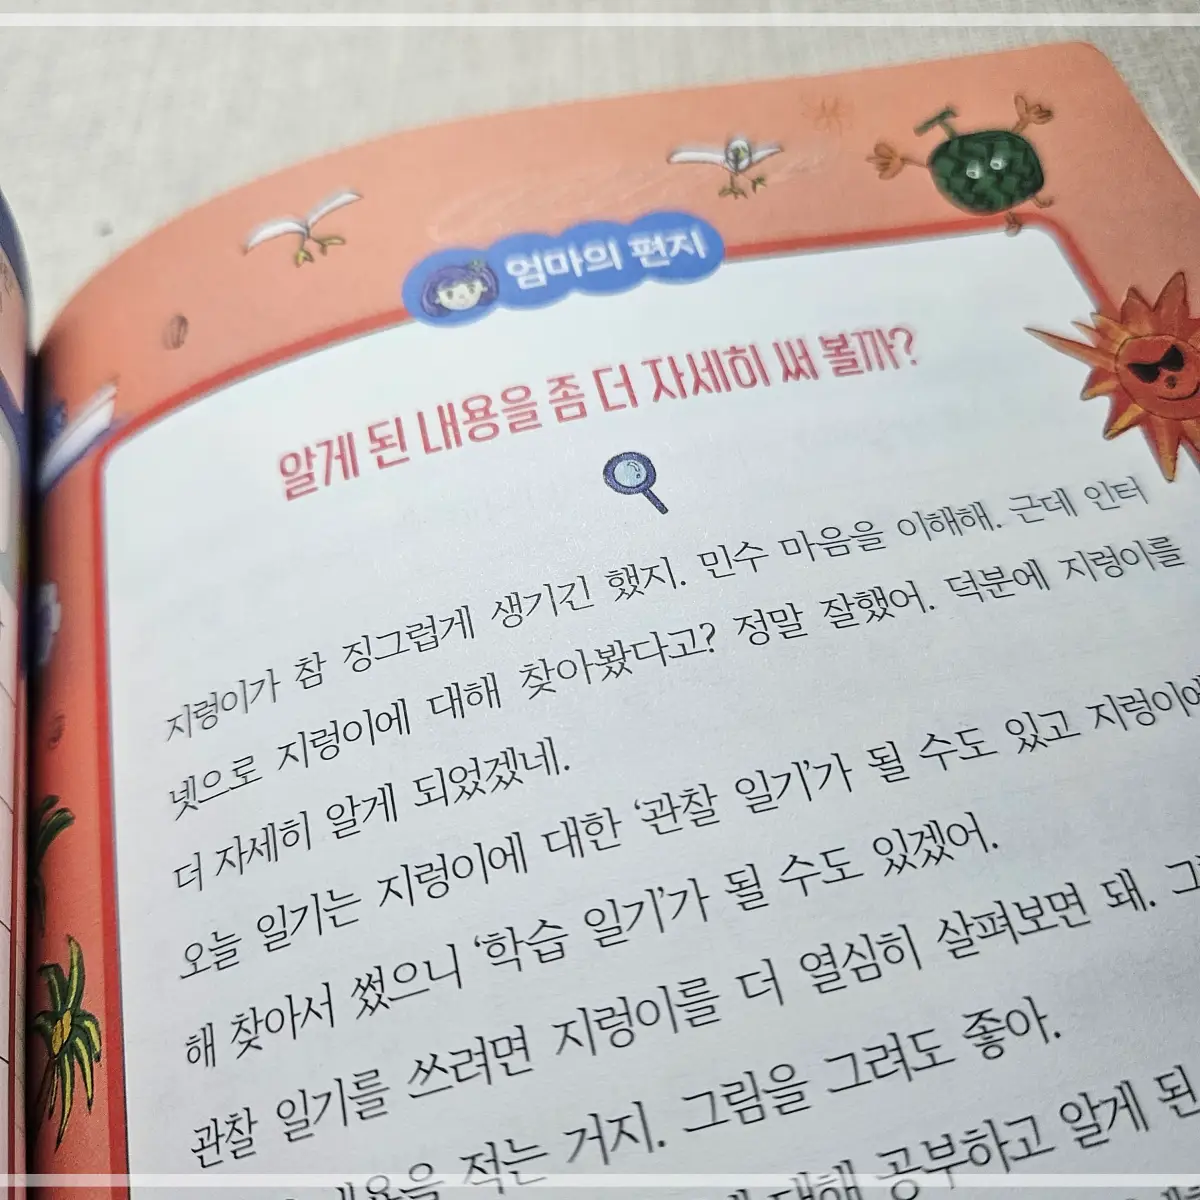 엄마의 편지
알게 된 내용을 좀 더 자세히 써 볼까?
지렁이가 참 징그럽게 생기긴 했지. 민수 마음을 이해해. 근데 인터
넷으로 지렁이에 대해 찾아봤다고? 정말 잘했어. 덕분에 지렁이를
더 자세히 알게 되었겠네.
오늘 일기는 지렁이에 대한 ‘관찰 일기’가 될 수도 있고 지렁이에
해 찾아서 썼으니 ‘학습 일기’가 될 수도 있겠어.
관찰 일기를 쓰려면 지렁이를 더 열심히 살펴보면 돼. 그
내용을 적는 거지. 그림을 그려도 좋아.
대해 공부하고 알게 된